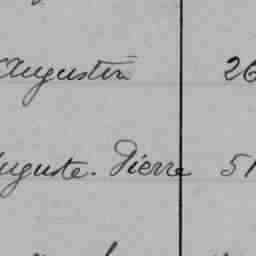 Augustin 26
Auguste. Pierre 51